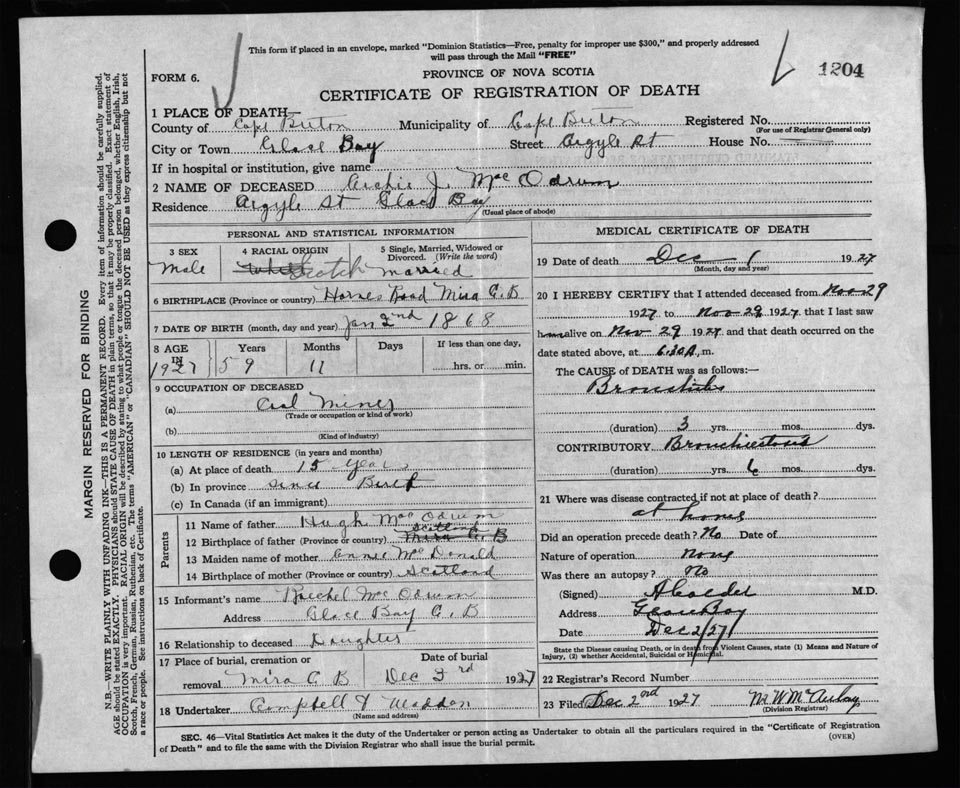 This form if placed in an envelope, marked "Dominion Statistics—Free, penalty for improper use $300," and properly addressed
will pass through the Mail "FREE"
FORM 6.
PROVINCE OF NOVA SCOTIA
1204
CERTIFICATE OF REGISTRATION OF DEATH
1 PLACE OF DEATH—
County of Cape Breton Municipality of Cape Breton Registered No.
(For use of Registrar General only)
City or Town Glace Bay Street Argyle St House No.
If in hospital or institution, give name
2 NAME OF DECEASED Archie J. MacOdrum
Residence Argyle St Glace Bay
(Usual place of abode)
PERSONAL AND STATISTICAL INFORMATION
3 SEX Male
4 RACIAL ORIGIN White Scotch
5 Single, Married, Widowed or Divorced. (Write the word) married
6 BIRTHPLACE (Province or country) Hornes Road Mira C.B
7 DATE OF BIRTH (month, day and year) Jan 2nd 1868
8 AGE IN 1927 Years 59 Months 11 Days If less than one day, hrs. or min.
9 OCCUPATION OF DECEASED
(a) Coal Miner
(Trade or occupation or kind of work)
(b)
(Kind of industry)
10 LENGTH OF RESIDENCE (in years and months)
(a) At place of death 15 years
(b) In province since Birth
(c) In Canada (if an immigrant)
Parents
11 Name of father Hugh MacOdrum
12 Birthplace of father (Province or country) Mira C.B Scotland
13 Maiden name of mother Annie McDonald
14 Birthplace of mother (Province or country) Scotland
15 Informant's name McOdrum
Address Glace Bay C.B
16 Relationship to deceased Daughter
17 Place of burial, cremation or removal Mira C.B
Date of burial Dec 3rd 1927
18 Undertaker Campbell & Madden
(Name and address)
MEDICAL CERTIFICATE OF DEATH
19 Date of death Dec 1 1927
(Month, day and year)
20 I HEREBY CERTIFY that I attended deceased from Nov 29
1927 to Nov 29 1927 that I last saw
him alive on Nov 29 1927 and that death occurred on the
date stated above, at 6.30 A. m.
The CAUSE of DEATH was as follows:—
Bronchitis
(duration) 3 yrs. mos. dys.
CONTRIBUTORY Bronchiectasis
(duration) yrs. 6 mos. dys.
21 Where was disease contracted if not at place of death?
at home
Did an operation precede death? No Date of
Nature of operation none
Was there an autopsy? No
(Signed) M.D.
Address Glace Bay
Date Dec 2/27
State the Disease causing Death, or in death from Violent Causes, state (1) Means and Nature of
Injury, (2) whether Accidental, Suicidal or Homicidal.
22 Registrar's Record Number
23 Filed Dec 2nd 1927
(Division Registrar)
SEC. 46—Vital Statistics Act makes it the duty of the Undertaker or person acting as Undertaker to obtain all the particulars required in the "Certificate of Registration
of Death" and to file the same with the Division Registrar who shall issue the burial permit.
(OVER)
MARGIN RESERVED FOR BINDING
N.B.—WRITE PLAINLY WITH UNFADING INK—THIS IS A PERMANENT RECORD. Every item of information should be carefully supplied.
AGE should be stated EXACTLY. PHYSICIANS should STATE CAUSE OF DEATH in plain terms, so that it may be properly classified. Exact statement of
OCCUPATION is very important. RACIAL ORIGIN will be described by stating to what people or tongue the deceased person belonged, whether English, Irish,
Scotch, French, German, Russian, Ruthenian, etc. The terms "AMERICAN" or "CANADIAN" SHOULD NOT BE USED as they express citizenship but not
a race or people. See instructions on back of Certificate.